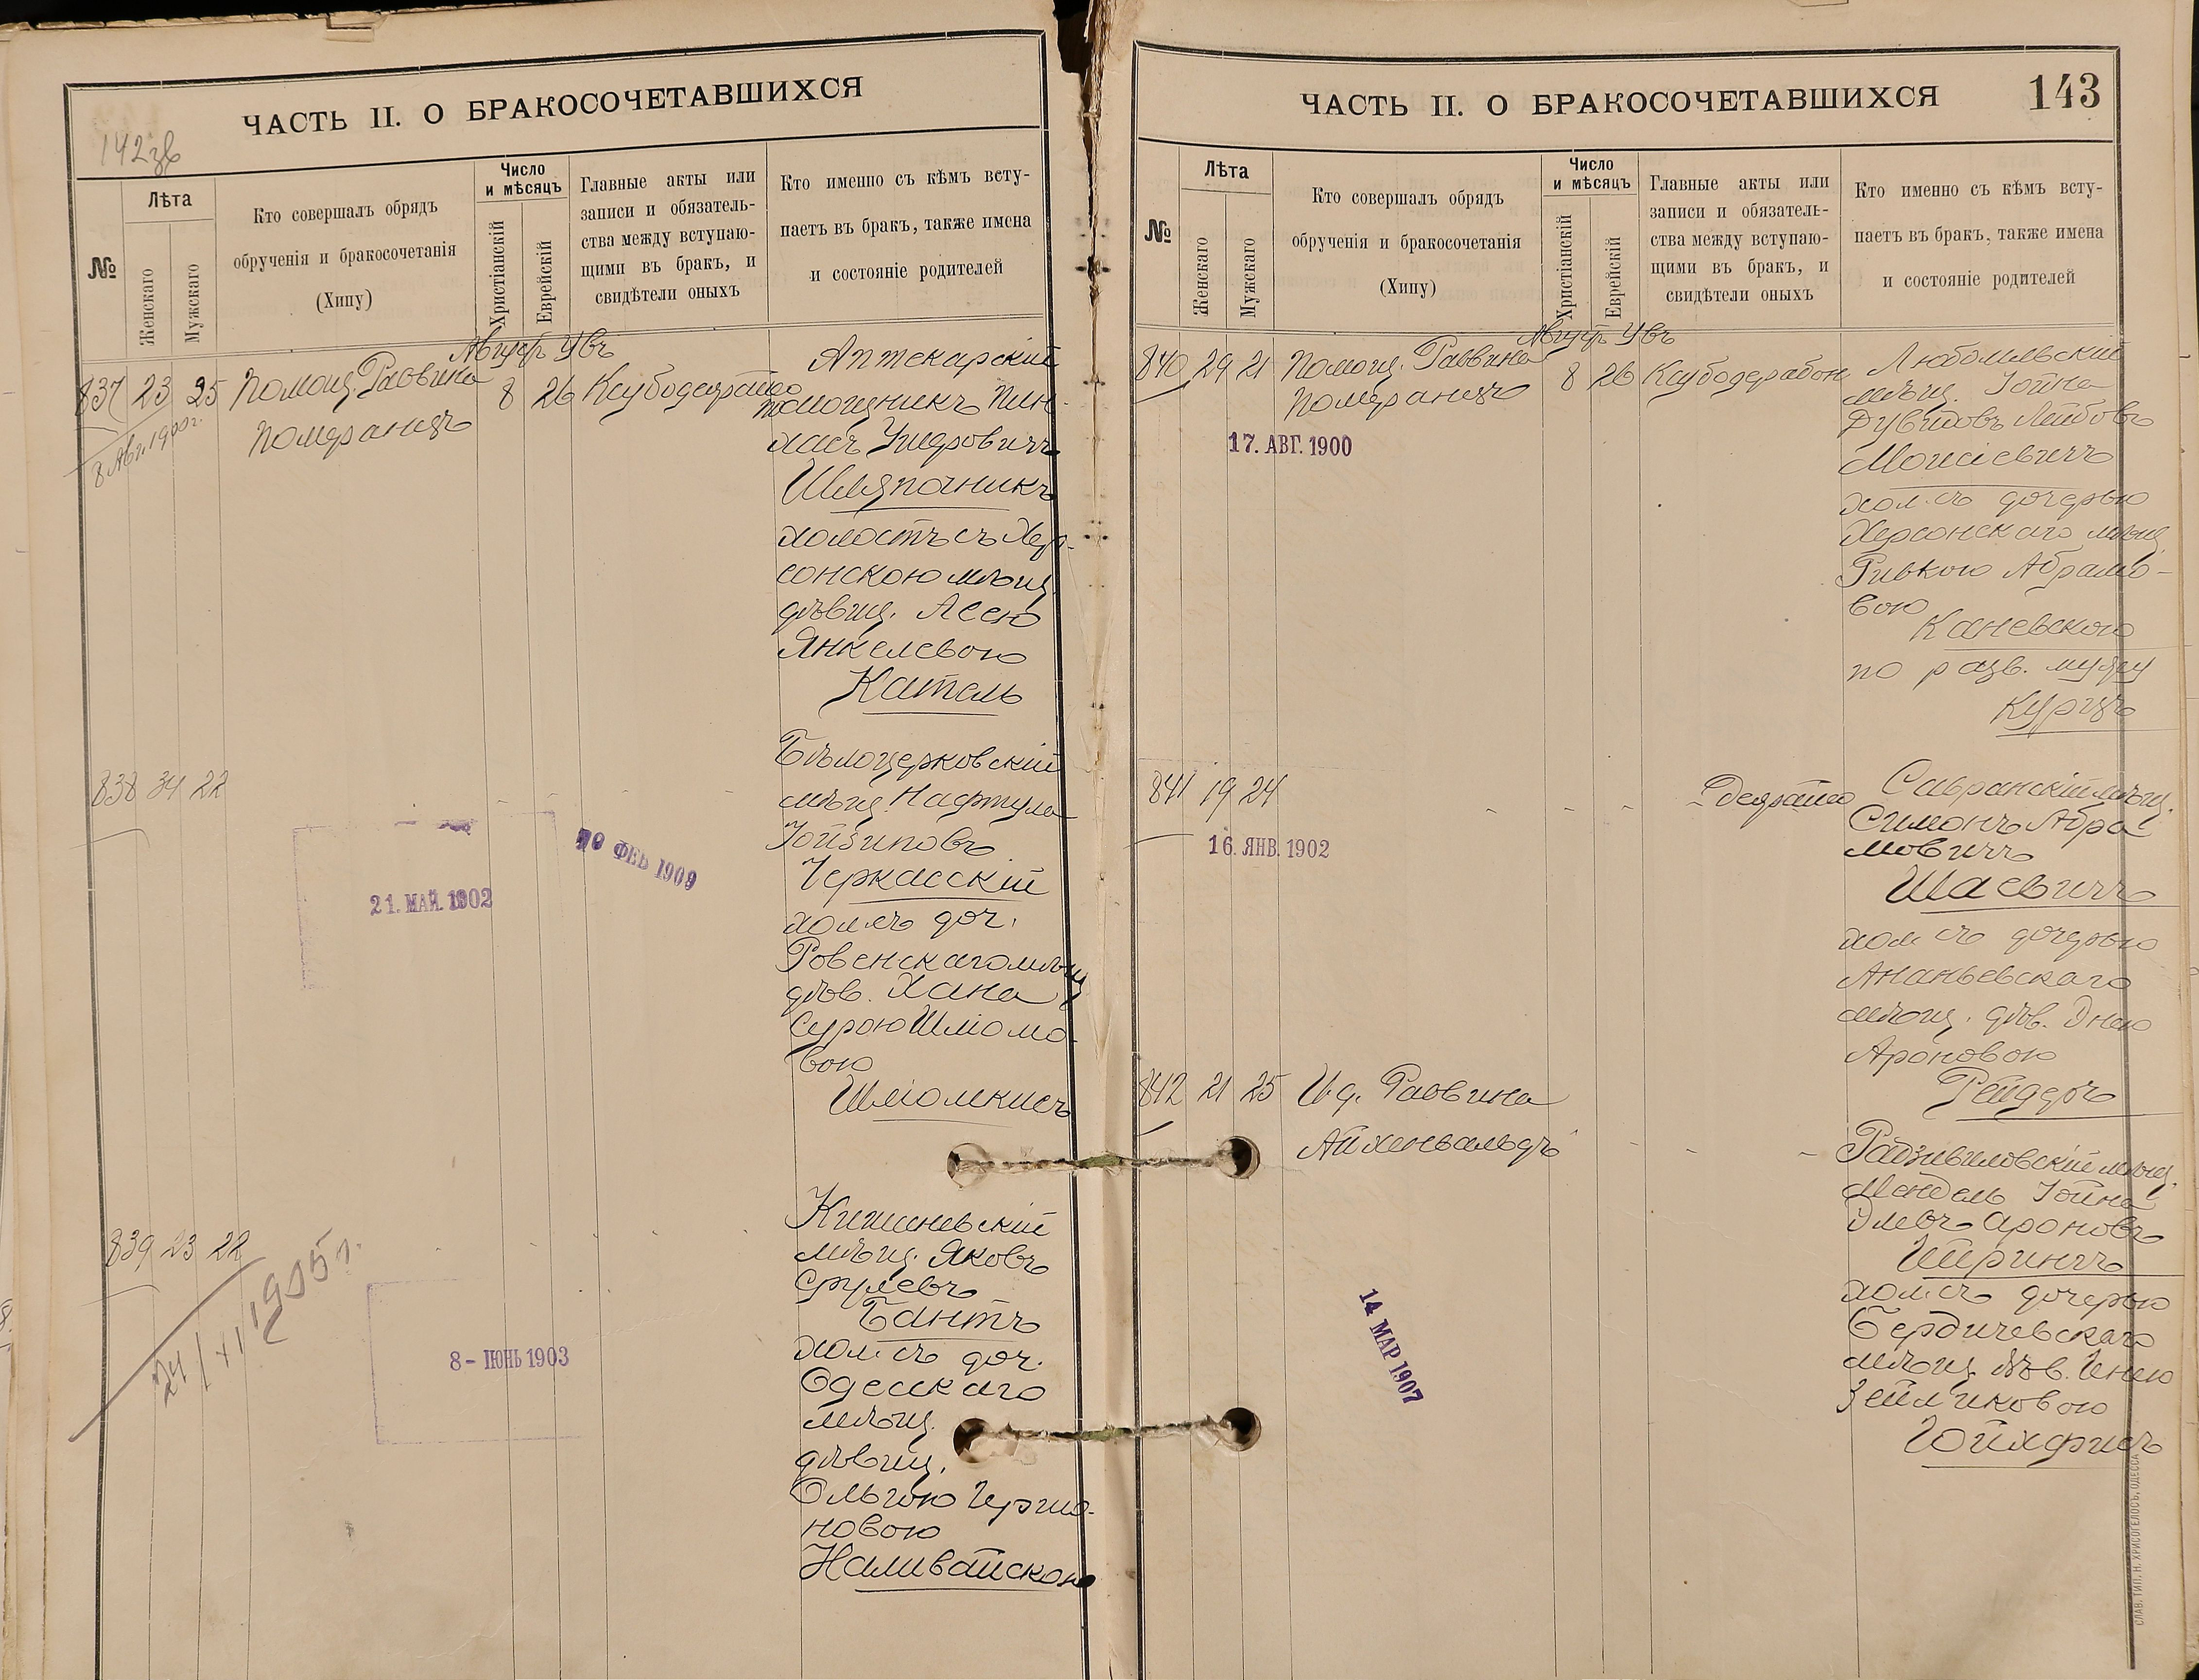 ЧАСТЬ II. О БРАКОСОЧЕТАВШИХСЯ
142зв
№
Лѣта
Женскаго
Мужскаго
Кто совершалъ обрядъ
обрученія и бракосочетанія
(Хипу)
Число
и мѣсяцъ
Христіанскій
Еврейскій
Главные акты или
записи и обязатель-
ства между вступаю-
щими въ бракъ, и
свидѣтели оныхъ
Кто именно съ кѣмъ всту-
паетъ въ бракъ, также имена
и состояніе родителей
837 23 25 Помощ. Раввина
Померанцъ
Август Увъ
8 26
8 Авг. 1900г.
Аптекарскій
помощникъ Пин-
хасъ Ушеровичъ
Шляпочникъ
холостъ съ Хер-
сонскою мѣщ.
дѣвиц. Асею
Янкелевою
Катель
838 34 22
21. МАЙ. 1902
ФЕВ 1909
Бѣлоцерковскій
мѣщ. Нафтула
Іойзиповъ
Черкасскій
хол. съ доч.
Ровенскаго мѣщ.
дѣв. Хана
Сурою Шліомо-
вою
Шліомкисъ
839 23 22
24/XI 1905г.
8- ІЮНЬ 1903
Кишиневскій
мѣщ. Яковъ
Срулевъ
Бантъ
хол. съ доч.
Одесскаго
мѣщ.
дѣвиц.
Ольгою Гершо-
новою
Наливайскою
ЧАСТЬ II. О БРАКОСОЧЕТАВШИХСЯ
143
№
Лѣта
Женскаго
Мужскаго
Кто совершалъ обрядъ
обрученія и бракосочетанія
(Хипу)
Число
и мѣсяцъ
Христіанскій
Еврейскій
Главные акты или
записи и обязатель-
ства между вступаю-
щими въ бракъ, и
свидѣтели оныхъ
Кто именно съ кѣмъ всту-
паетъ въ бракъ, также имена
и состояніе родителей
840 29 21 Помощ. Раввина
Померанцъ
Август Увъ
8 26
17. АВГ. 1900
Любомльскій
мѣщ. Іойна
Дувидовъ Лейбовъ
Моисіевичъ
хол. съ дочерью
Херсонскаго мѣщ.
Ривкою Абрамо-
вою
Каневскою
по разв. мужу
Курцъ
841 19 24
16. ЯНВ. 1902
Савранскій мѣщ.
Симонъ Абра
мовичъ
Шаевичъ
хол съ дочерью
Ананьевскаго
мѣщ. дѣв. Энею
Ароновою
Рейдеръ
842 21 25 И.д. Раввина
Айхенвальдъ
14 МАР 1907
Радзивиловскій мѣщ.
Мендель Іойна
Элевъ Ароновъ
Штрингъ
хол. съ дочерью
Бердичевскаго
мѣщ. дѣв. Енею
Зейликовою
Юйхфисъ
СЛАВ. ТИП. Н. ХРИСОГЕЛОСЪ, ОДЕССА